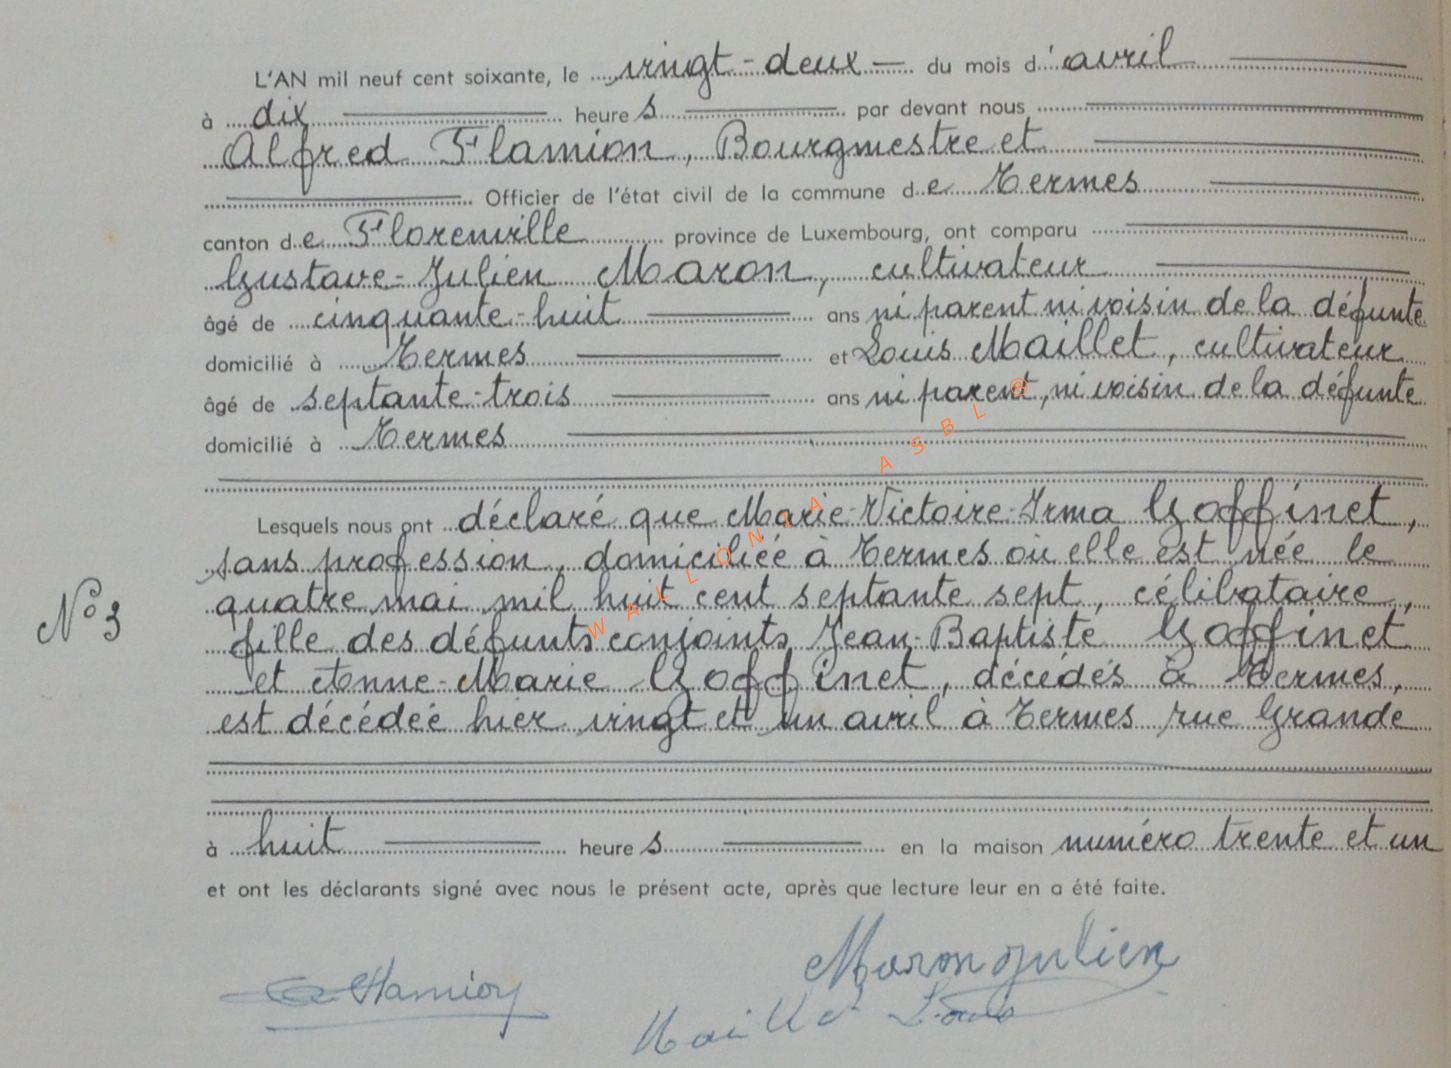 L'AN mil neuf cent soixante, le vingt-deux — du mois d'avril
à dix heures par devant nous
Alfred Flamion, Bourgmestre et
Officier de l'état civil de la commune de Termes
canton de Florenville province de Luxembourg, ont comparu
Gustave-Julien Maron, cultivateur
âgé de cinquante-huit ans ni parent ni voisin de la défunte
domicilié à Termes et Louis Maillet, cultivateur
âgé de septante-trois ans ni parent, ni voisin de la défunte
domicilié à Termes
Lesquels nous ont déclaré que Marie-Victoire-Irma Goffinet,
sans profession, domiciliée à Termes où elle est née le
N° 3
quatre mai mil huit cent septante sept, célibataire,
fille des défunts conjoints Jean-Baptiste Goffinet
et Anne-Marie Goffinet, décédés à Termes,
est décédée hier vingt et un avril à Termes rue Grande
à huit heures en la maison numéro trente et un
et ont les déclarants signé avec nous le présent acte, après que lecture leur en a été faite.
Maron Julien
Flamion
Maillet Louis
WALLONIA ASBL ®